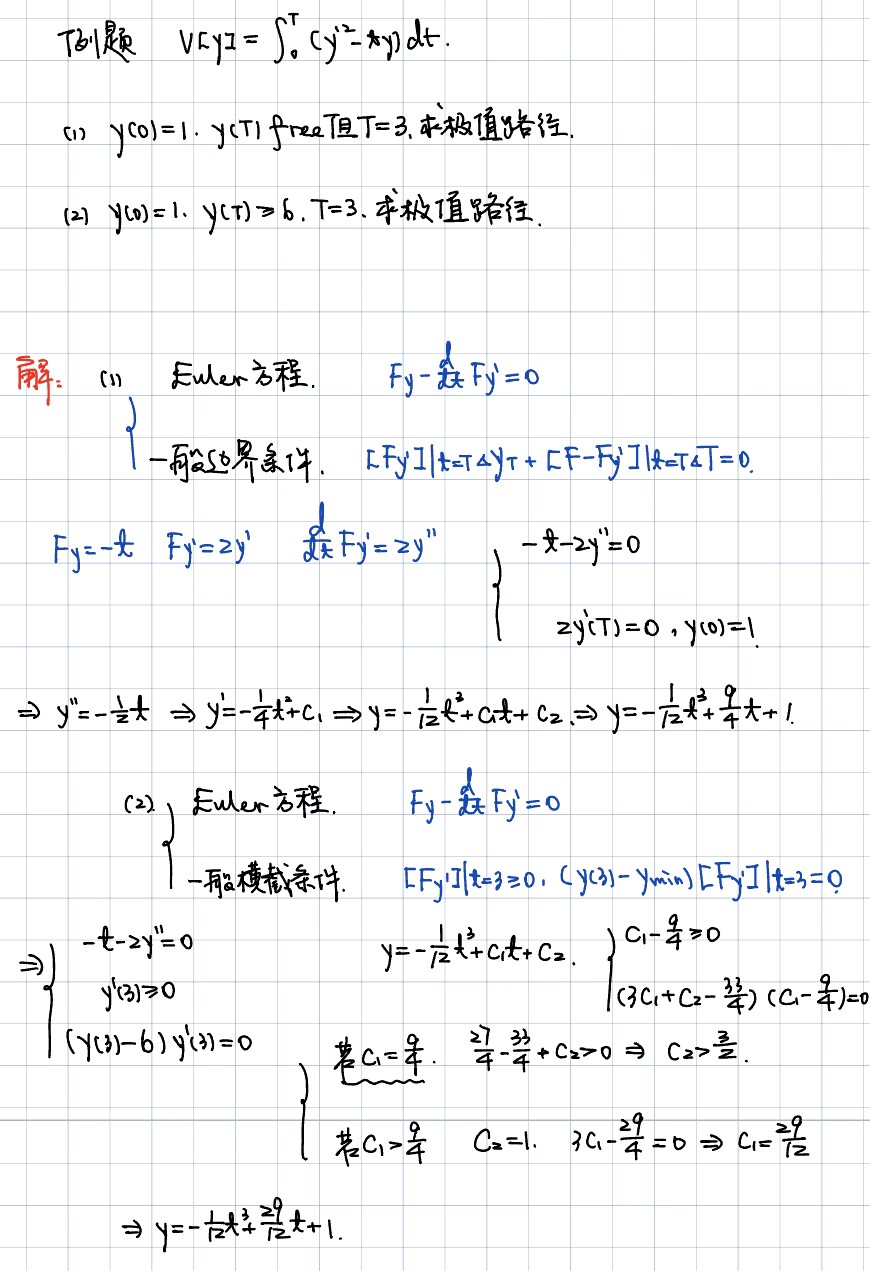 例题 V[y] = ∫₀ᵀ (y'² - ty) dt.
(1) y(0)=1. y(T) free 且 T=3. 求极值路径.
(2) y(0)=1. y(T)≥6. T=3. 求极值路径.
解: (1) Euler方程. Fy - d/dt Fy' = 0
一般边界条件. [Fy']|t=T ΔyT + [F-Fy']|t=T ΔT = 0.
Fy = -t Fy' = 2y' d/dt Fy' = 2y'' -t-2y''=0
2y'(T)=0, y(0)=1.
⇒ y'' = -1/2 t ⇒ y' = -1/4 t² + C₁ ⇒ y = -1/12 t³ + C₁t + C₂. ⇒ y = -1/12 t³ + 9/4 t + 1.
(2) Euler方程. Fy - d/dt Fy' = 0
一般横截条件. [Fy']|t=3 ≥ 0. (y(3) - ymin) [Fy']|t=3 = 0
⇒ -t-2y''=0 y = -1/12 t³ + C₁t + C₂. C₁ - 9/4 ≥ 0
y'(3)≥0 (3C₁ + C₂ - 33/4) (C₁ - 9/4) = 0
(y(3)-6) y'(3) = 0 若 C₁ = 9/4. 27/4 - 33/4 + C₂ > 0 ⇒ C₂ > 3/2.
若 C₁ > 9/4 C₂ = 1. 3C₁ - 29/4 = 0 ⇒ C₁ = 29/12
⇒ y = -1/12 t³ + 29/12 t + 1.